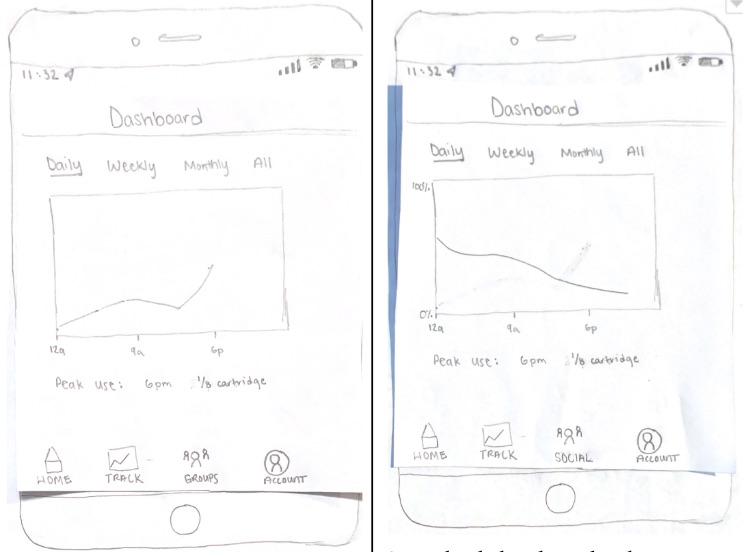 11:32
Dashboard
Daily Weekly Monthly All
12a 9a 6p
Peak use: 6pm 1/8 cartridge
HOME TRACK GROUPS ACCOUNT
11:32
Dashboard
Daily Weekly Monthly All
100%
0%
12a 9a 6p
Peak use: 6pm 1/8 cartridge
HOME TRACK SOCIAL ACCOUNT